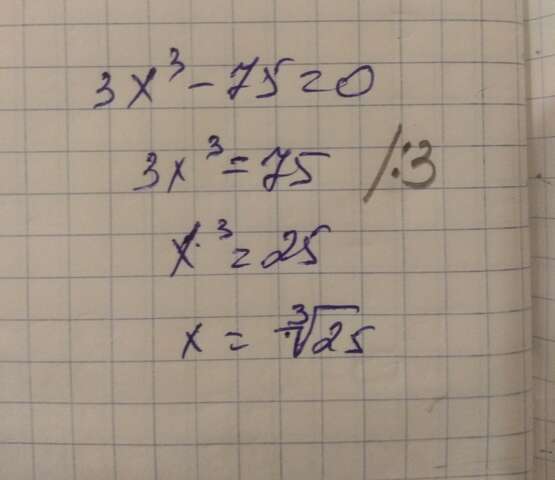 3x³ - 75 = 0
3x³ = 75 /:3
x³ = 25
x = ∛25